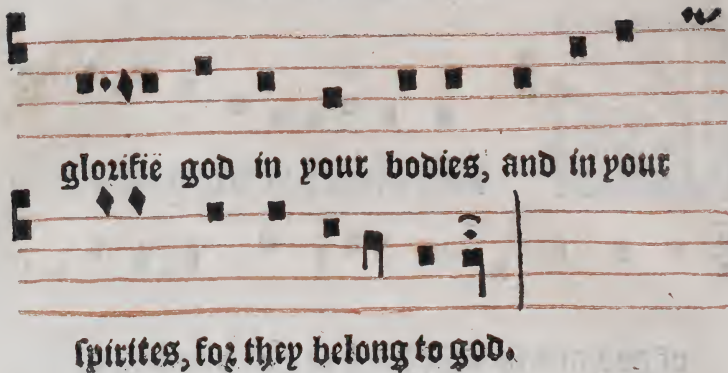 gloꝛifië god in your bodies, and in your
ſpirites, foꝛ they belong to god.